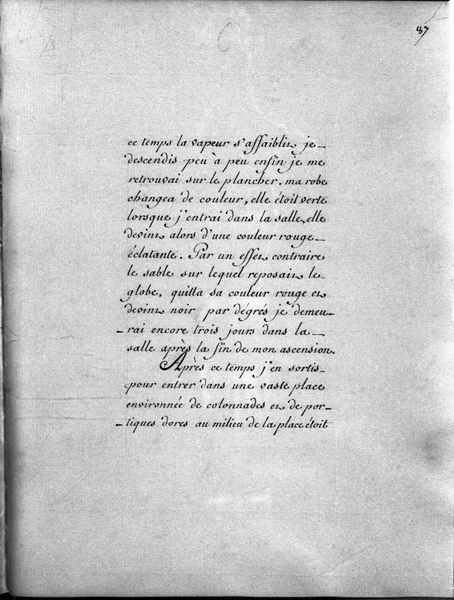 47
ce temps la vapeur s'affaiblit je
descendis peu à peu enfin je me
retrouvai sur le plancher, ma robe
changea de couleur, elle étoit verte
lorsque j'entrai dans la salle, elle
devint alors d'une couleur rouge
éclatante. Par un effet contraire
le sable sur lequel reposait le
globe, quitta sa couleur rouge et
devint noir par dégrés je demeu-
-rai encore trois jours dans la
salle après la fin de mon ascension
Après ce temps j'en sortis
pour entrer dans une vaste place
environnée de colonnades et de por-
-tiques dorés au milieu de la place étoit